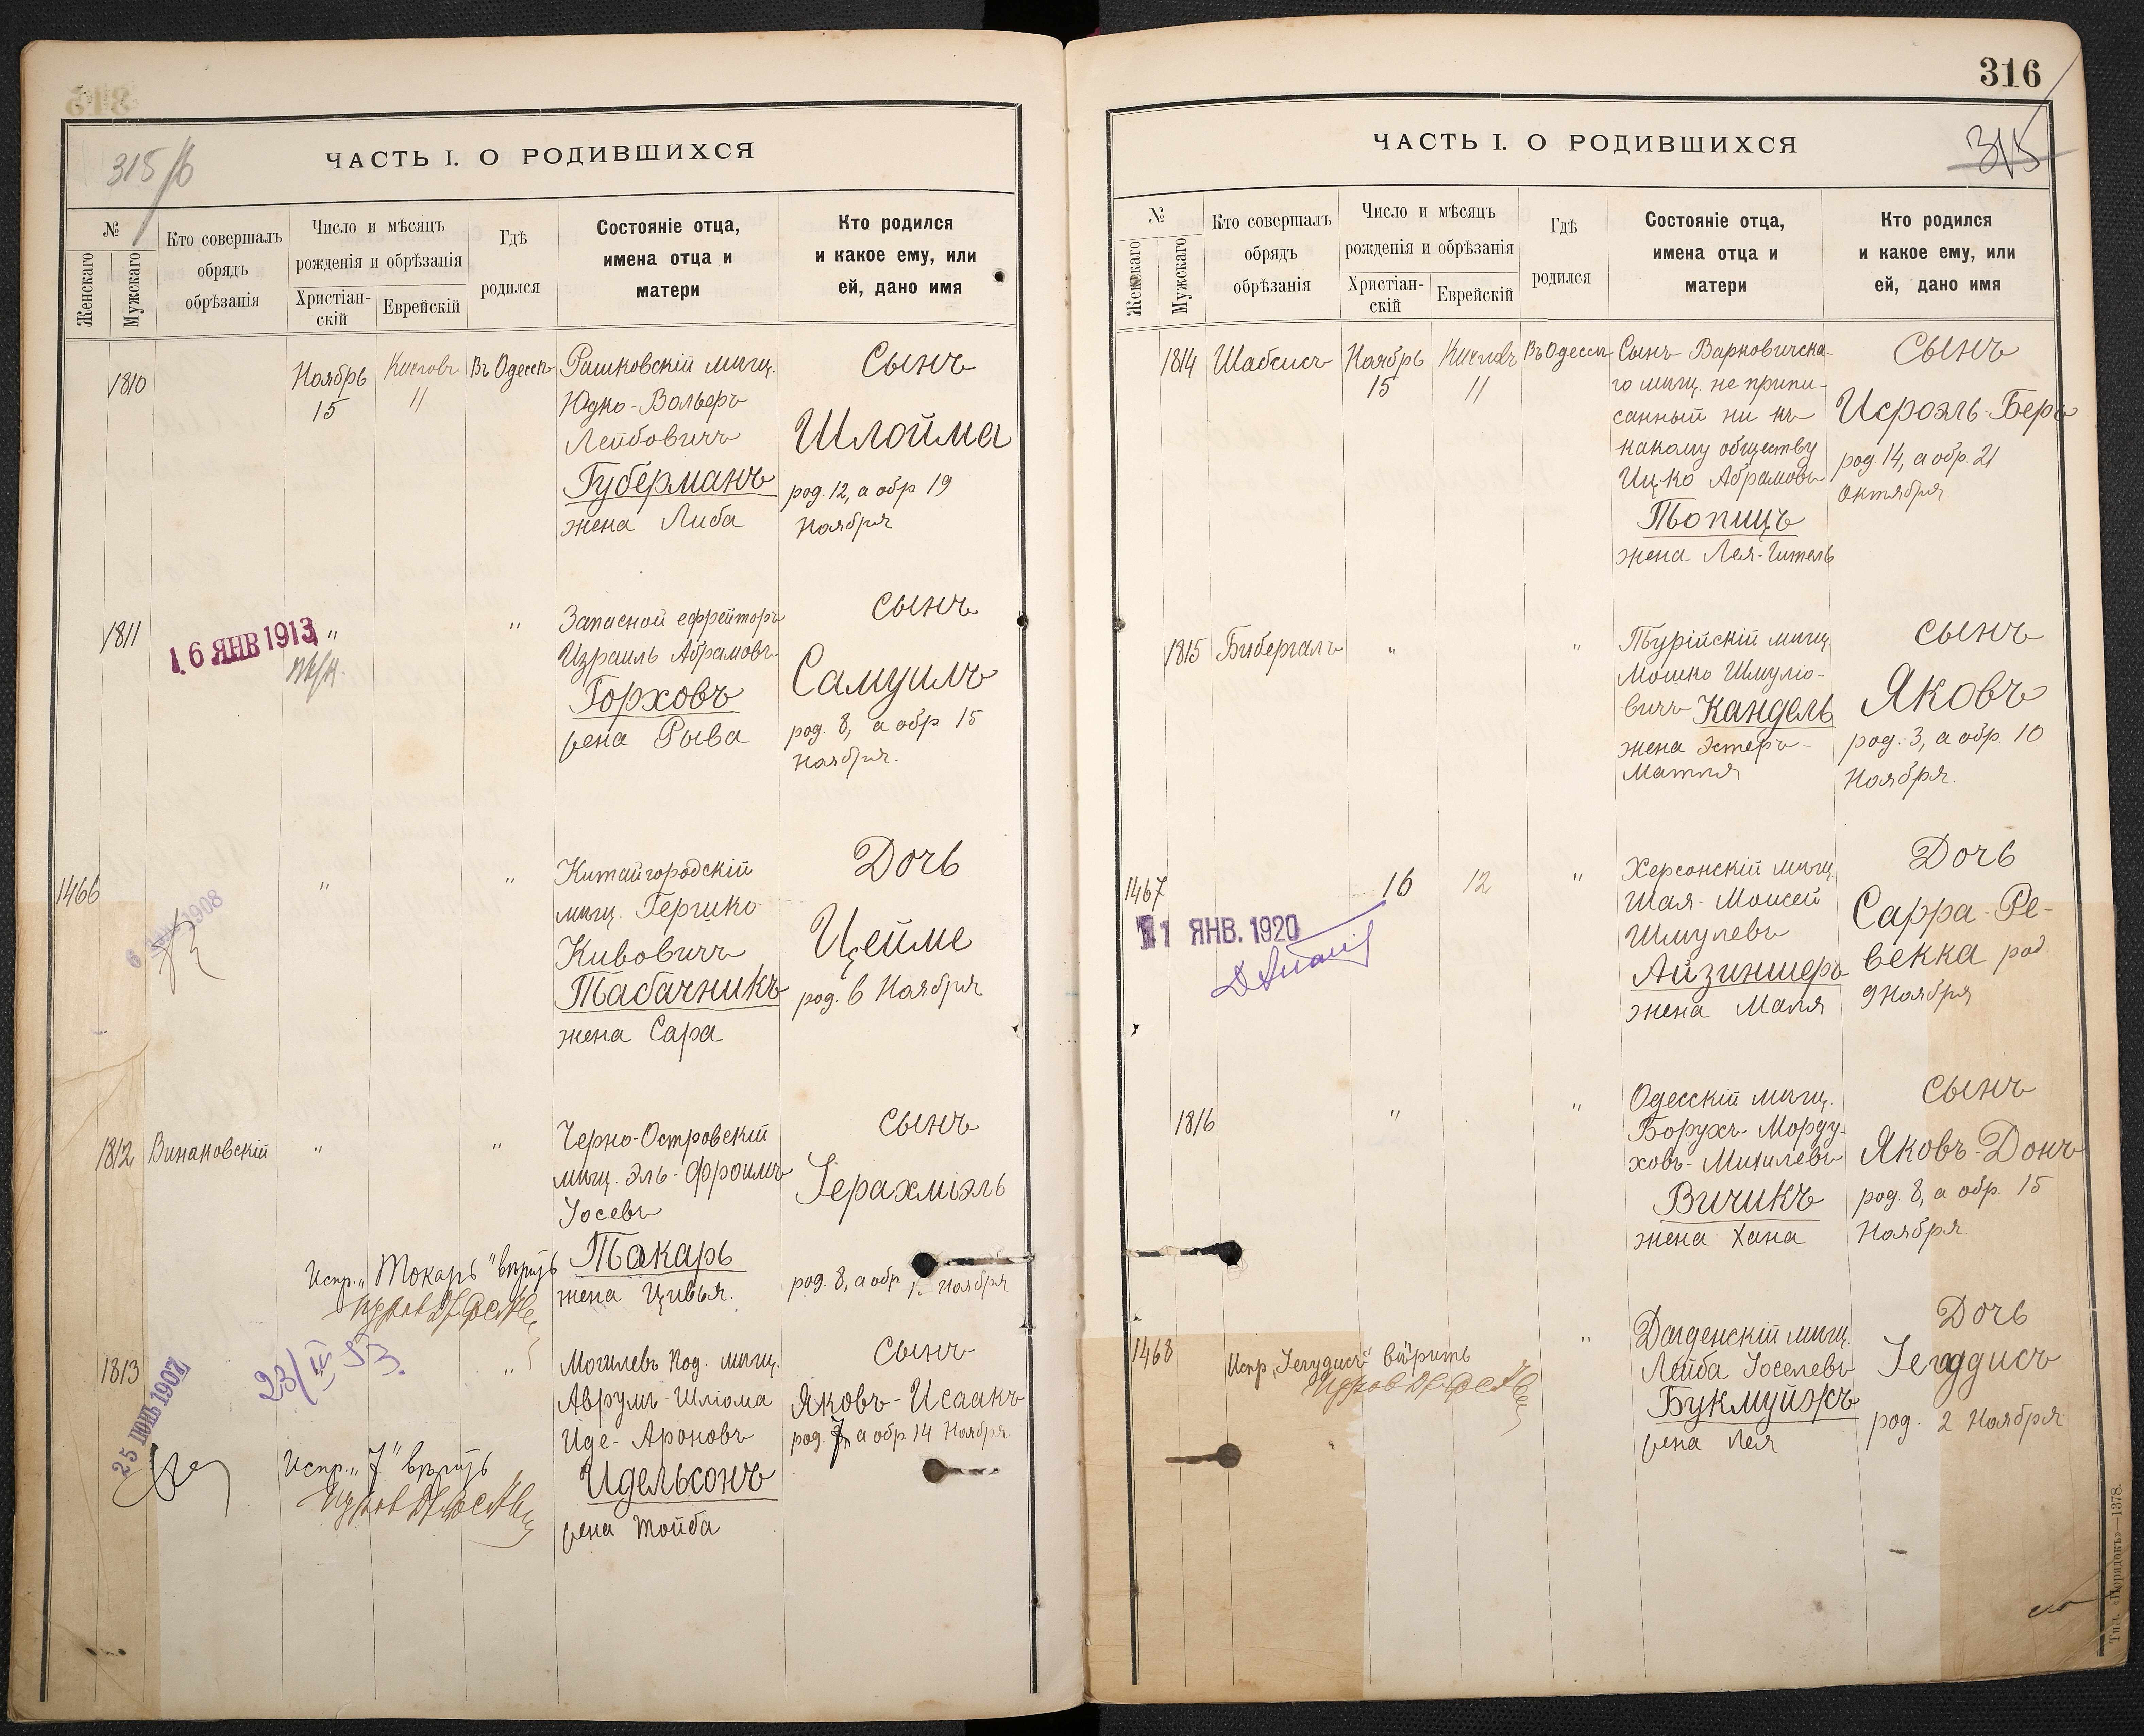 315/б
ЧАСТЬ I. О РОДИВШИХСЯ
№
Женскаго
Мужскаго
Кто совершалъ
обрядъ
обрѣзанія
Число и мѣсяцъ
рожденія и обрѣзанія
Христіан-
скій
Еврейскій
Гдѣ
родился
Состояніе отца,
имена отца и
матери
Кто родился
и какое ему, или
ей, дано имя
1810
Ноябрь
15
Кислевъ
11
Въ Одессѣ
Рашковскій мѣщ.
Юдко-Вольеръ
Лейбовичъ
Губерманъ
жена Либа
Сынъ
Шлойма
род. 12, а обр 19
Ноября
1811
16 ЯНВ 1913
"
"
Запасной ефрейторъ
Израиль Абрамовъ
Горховъ
жена Рыва
сынъ
Самуилъ
род. 8, а обр 15
Ноября.
1466
1908
"
"
Китайгородскій
мѣщ. Гершко
Кивовичъ
Табачникъ
жена Сара
Дочь
Цейме
род. 6 Ноября
1812
Винаковскій
"
"
Черно-Островскій
мѣщ. Эль-Фроимъ
Іосевъ
Токарь
жена Цивья.
сынъ
Іерахміэль
род. 8, а обр 1 Ноября
Испр. „Токарь" вѣрить
1813
25 ІЮНЬ 1907
23/IV 53.
"
Могилевъ Под. мѣщ.
Аврумъ-Шліома
Иде-Ароновъ
Идельсонъ
жена Тойба
Сынъ
Яковъ-Исаакъ
род. 7, а обр 14 Ноября
Испр. „7" вѣрить
316
315
ЧАСТЬ I. О РОДИВШИХСЯ
№
Женскаго
Мужскаго
Кто совершалъ
обрядъ
обрѣзанія
Число и мѣсяцъ
рожденія и обрѣзанія
Христіан-
скій
Еврейскій
Гдѣ
родился
Состояніе отца,
имена отца и
матери
Кто родился
и какое ему, или
ей, дано имя
1814
Шабсисъ
Ноябрь
15
Кислевъ
11
Въ Одессѣ
Сынъ Варковичска-
го мѣщ. не припи-
санный ни къ
какому обществу
Ицко Абрамовъ
Топицъ
жена Лея-Гитель
сынъ
Исроэль-Беръ
род. 14, а обр. 21
Октября
1815
Бибергалъ
"
"
Турійскій мѣщ.
Мошко Шмуліо-
вичъ Кандель
жена Эстеръ-
Матля
сынъ
Яковъ
род. 3, а обр. 10
Ноября.
1467
11 ЯНВ. 1920
16
12
"
Херсонскій мѣщ
Шая-Моисей
Шмулевъ
Айзиншеръ
жена Маля
Дочь
Сарра-Ре-
векка род.
9 Ноября
1816
"
"
Одесскій мѣщ.
Борухъ Морду-
ховъ-Михилевъ
Вичикъ
жена Хана
сынъ
Яковъ-Донъ
род. 8, а обр. 15
Ноября
1468
Испр. „Іегудисъ" вѣрить
"
"
Дагденскій мѣщ.
Лейба Іоселевъ
Букмуйжъ
жена Лея
Дочь
Іегудисъ
род. 2 Ноября
Тип. «Порядокъ»—1378.